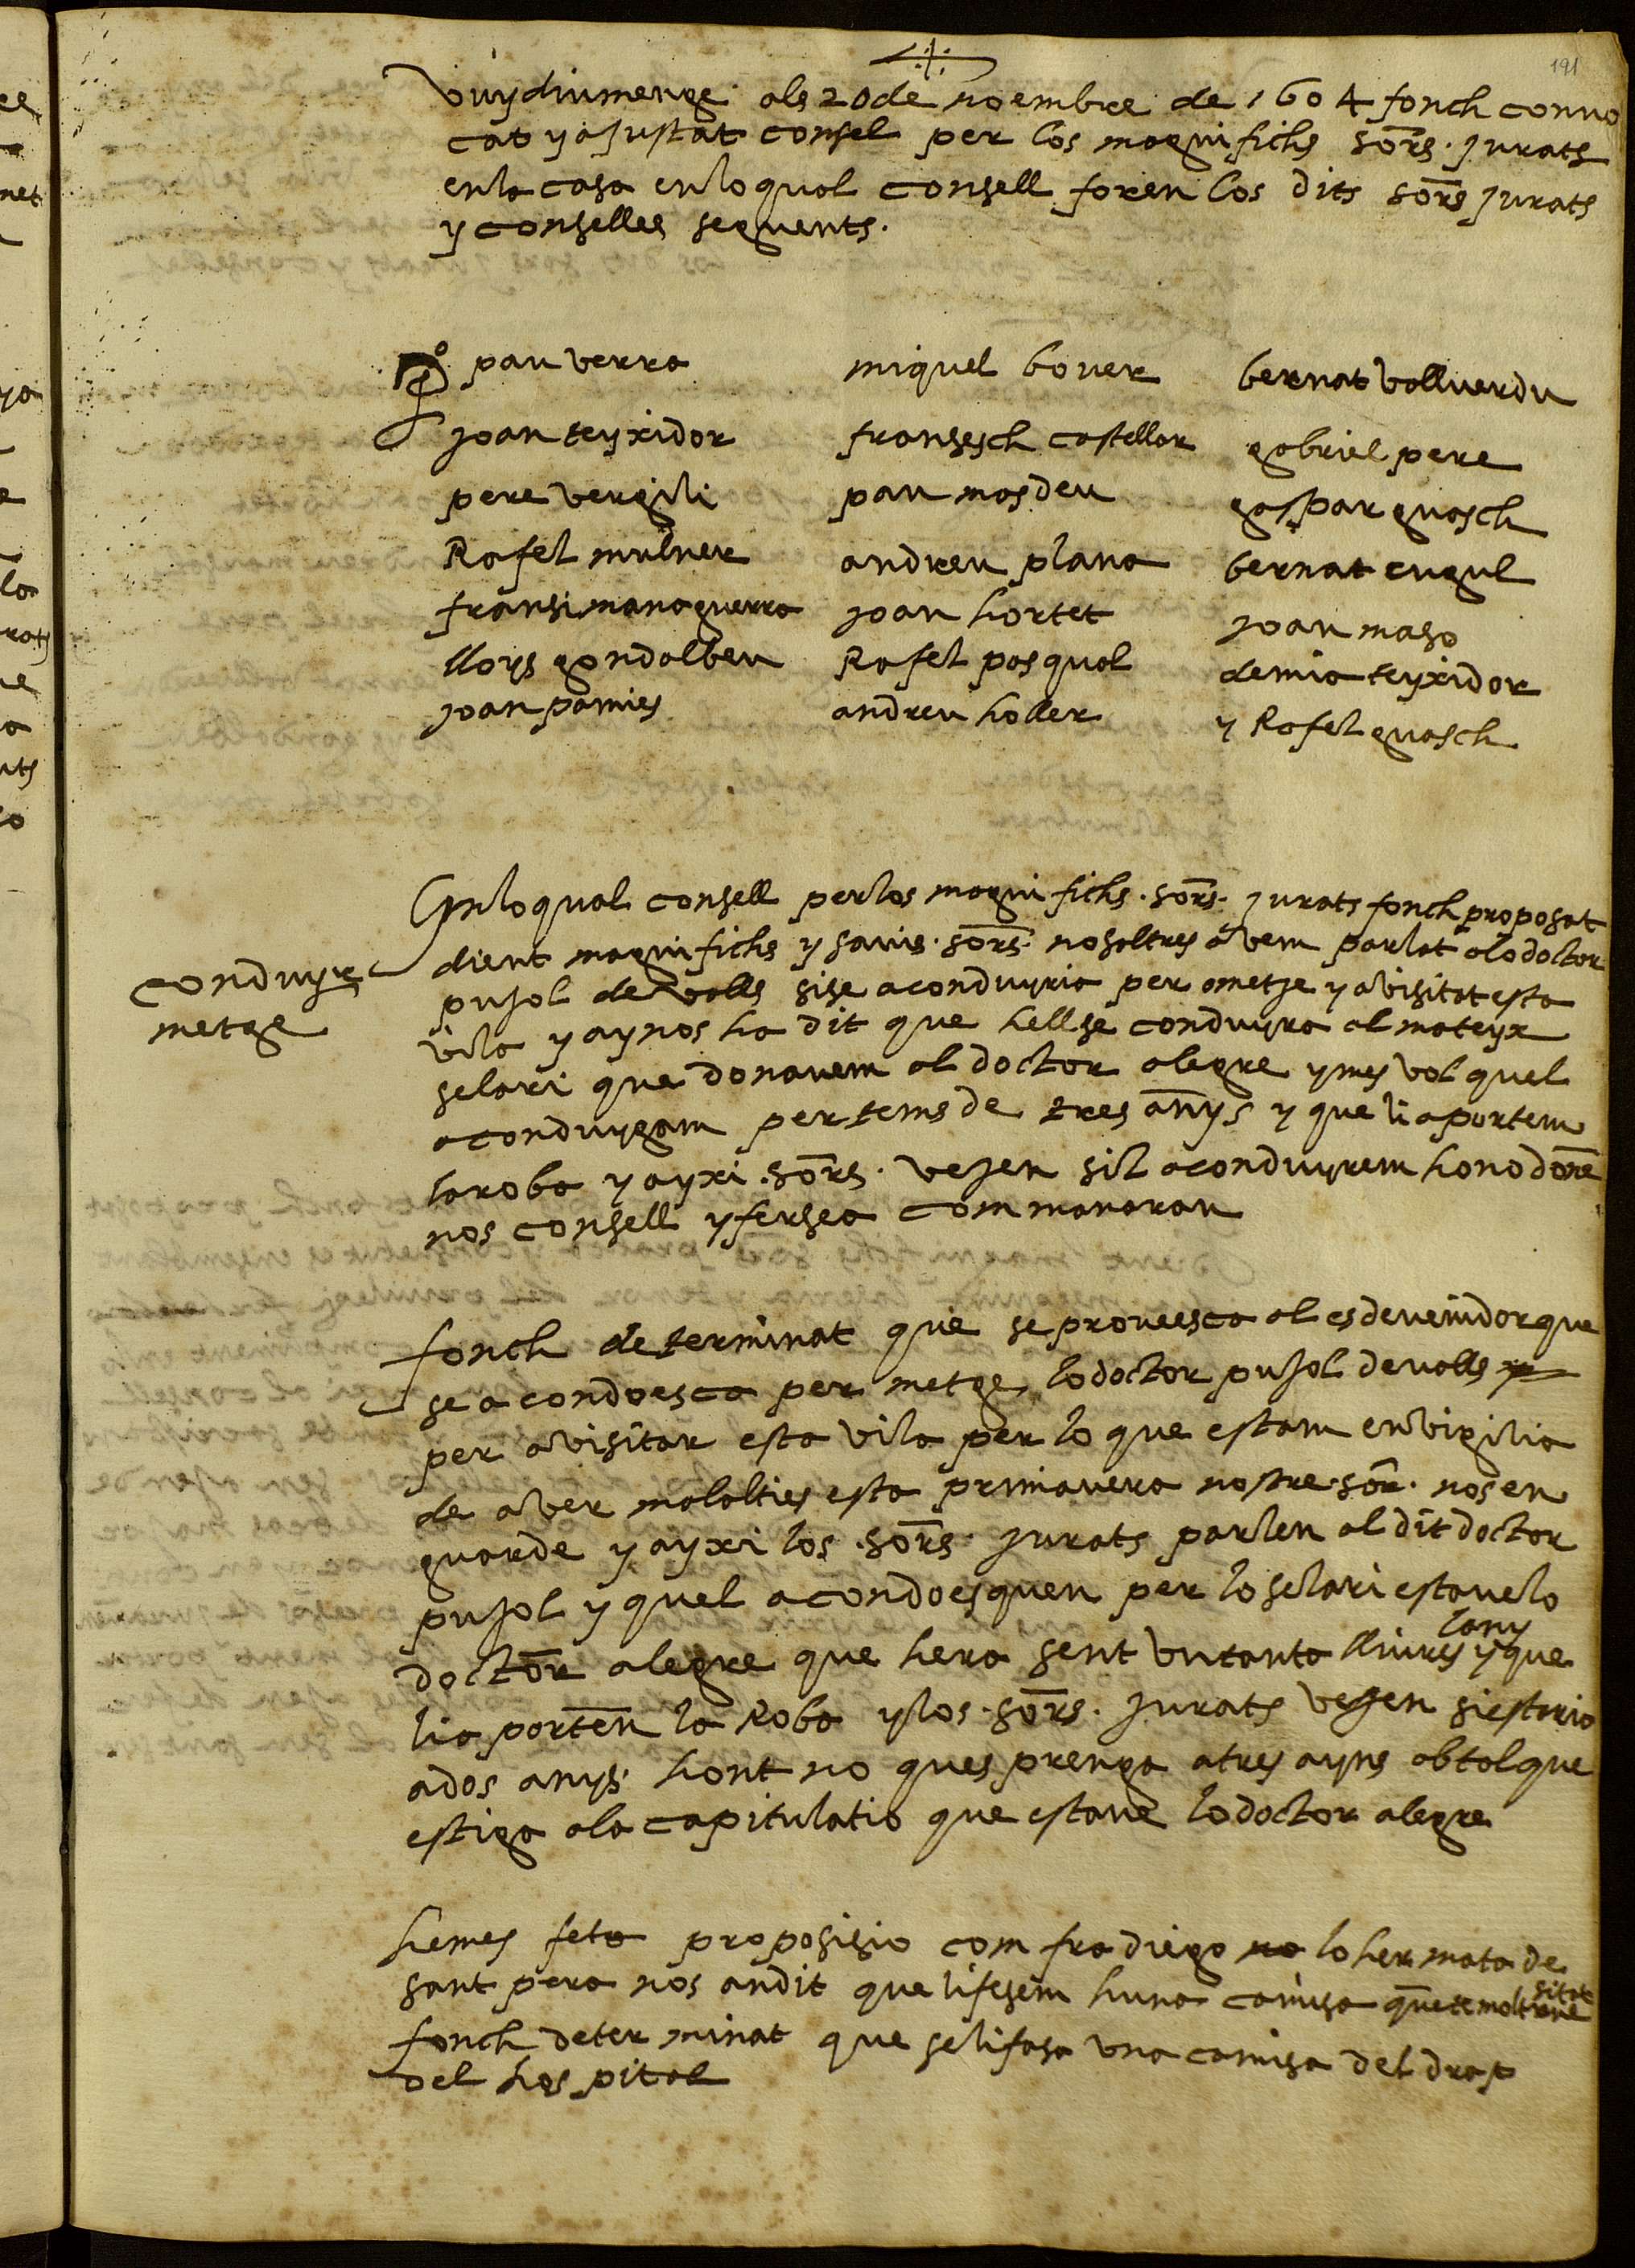 191
vuy diumenge als 20 de noembre de 1604 fonch convo
cat y ajustat consel per los magnifichs sors. jurats
en la casa en lo qual consell foren los dits sors jurats
y conselles seguents.
pau verra
joan teyxidor
pere vergili
Rafel mulner
fransi managuerra
lloys gondolbeu
joan pamies
miquel bover
fransesch castellar
pau masdeu
andreu plana
joan hortet
Rafel pasqual
andreu holler
bernat vallverdu
gabriel pere
gaspar guasch
bernat cugul
joan maso
demia teyxidor
y Rafel guasch
conduyre
metge
En lo qual consell per los magnifichs. sors. jurats fonch proposat
dient magnifichs y savis. sors. nosaltres avem parlat a lo doctor
pujol de valls si se aconduyria per a metje y a visitat esta
vila y ay nos ha dit que hell se conduyra al mateyx
selari que donavem al doctor alegre y mes vol quel
aconduygam per tems de tres anys y que li aportem
la roba y ayxi. sors. vejen sil aconduyrem ho no done
nos consell y fersea com manaran
fonch determinat que se proveesca al esdevenidor que
se a condoesca per metge lo doctor pujol de valls
per a visitar esta vila per lo que estam en vigilia
de aver malalties esta primavera nostre. sor. nos en
guarde y ayxi los. sors. jurats parlen al dit doctor
pujol y quel acondoesquen per lo selari estave lo
lany
doctor alegre que hera sent vutanta lliures y que
li aporten la Roba y los. sors. jurats vejen si estaria
a dos anys hont no ques prenga a tres ayns ab tal que
estiga a la capitulatio que estave lo doctor alegre
he mes feta proposisio com fra diego lo hermata de
sant pera nos an dit que li fesem huna camisa que te molt
sitat
fonch determinat que se li fasa una camisa del drap
del hospital